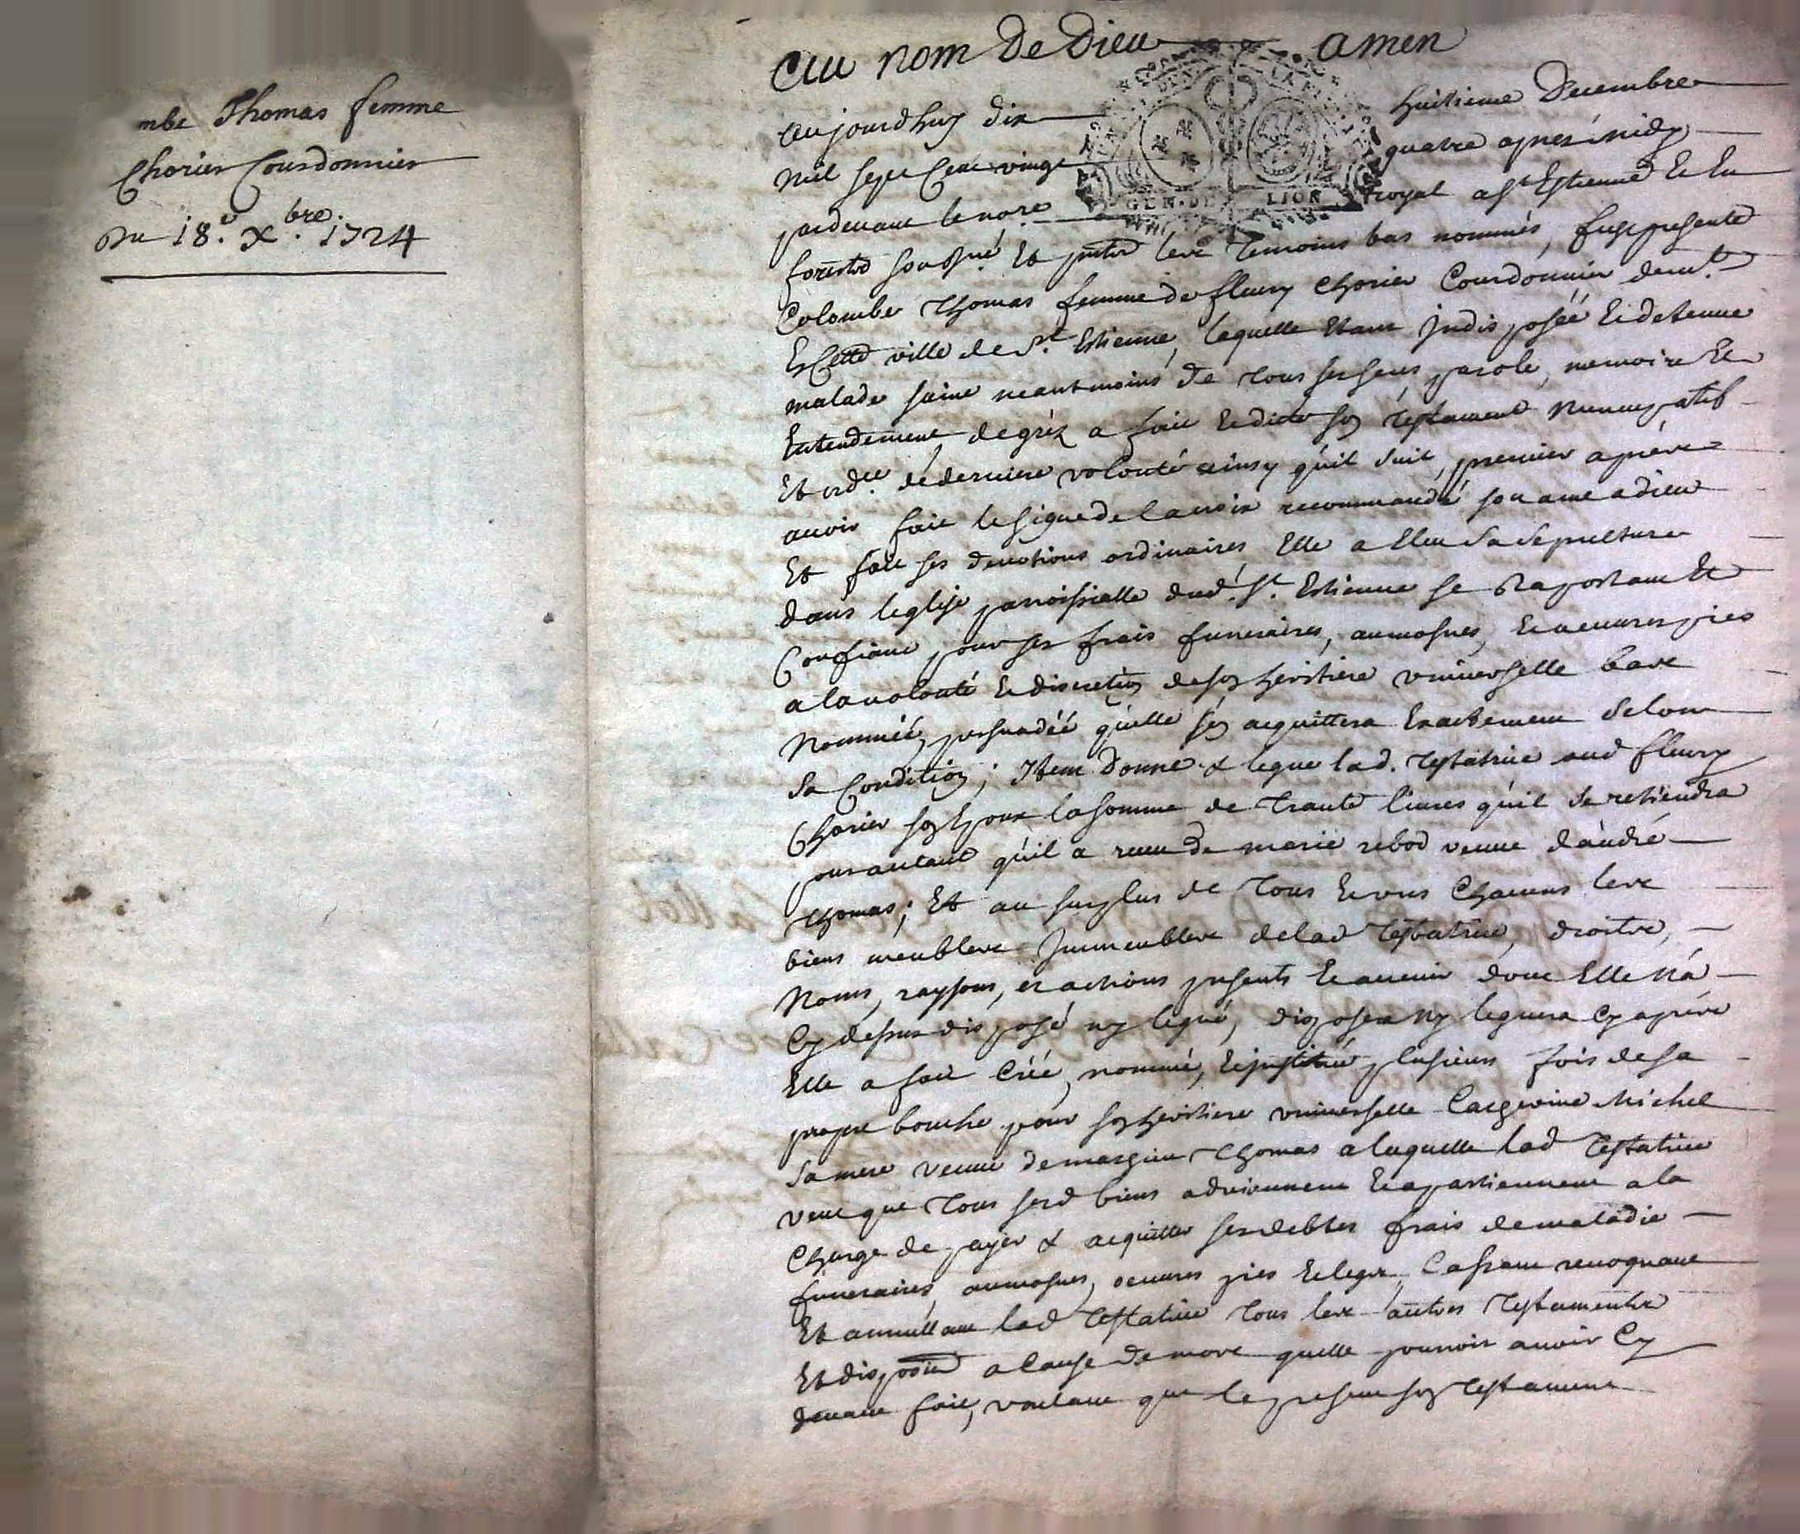 mbe Thomas femme
Chorier Courdonnier
Du 18.e Xbre. 1724
Au nom de Dieu amen
Aujourdhuy dix huitieme Decembre
mil sept Cent vingt quatre apres midy
pardevant le nore royal a St Estienne et en
forestz sousné. Et pntz lex temoins bas nommés, fust presente
Colombe Thomas femme de fleury Chorier Courdonnier demt.
En Cette ville de St. Estienne, laquelle Etant Indisposéé et detenue
malade saine neantmoins de tous ses sens, parole, memoire Et
Entendement, de gréz a fait et dicté soy testament Nuncupatif
Et ordce. de derniere volonté ainsy qu'il suit, premier apréx
avoir fait le signe de la croix recommandé son ame a dieu
Et fait ses devotions ordinaires Elle a Eleu Sa Sepulture
dans leglise parroissialle dud. St. Estienne se Raportant Et
Confiant pour ses frais funeraires, aumosnes, et oeuures pies
a la volonté et discretioy de soy heritiere vniuerselle bax
Nommée, persuadéé qu'elle s'ey acquittera Exactement selon
Sa Conditioy; Item Donne & legue lad. testatrice aud fleury
Chorier soy Epoux la somme de trante liures qu'il se retiendra
pour autant qu'il a receu de marie rebod veuue d'andré
thomas; Et au surplus de tous et vns Chacuns lex
biens meublex Immeublex de lad testatrice, droitx,
Noms, raysons, et actions presents et auenir dont Elle n'a
Cy dessus disposé ny legué, disposera ny leguera Cy apréx
Elle a fait Créé, nommé, et institué plusieurs fois de sa
propre bouche pour soy heritiere vniuerselle Catherine Michel
Sa mere veuue de mathieu thomas a laquelle lad testatrice
veut que tous sesd biens adviennent et apartiennent a la
Charge de payer & acquitter ses debtes frais de maladie
funeraires, aumosnes, oeuures pies et legx, Cassant reuoquant
Et annullant lad testatrice tous lex autres testamentx
Et dispoon a Cause de mort quelle pouroit auoir Cy
deuant fait, voulant que le present soy testament
GEN. DE LION